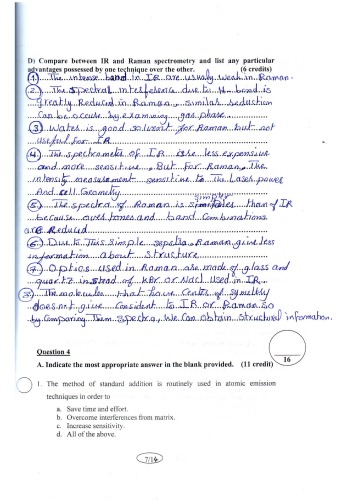 D) Compare between IR and Raman spectrometry and list any particular
advantages possessed by one technique over the other. (6 credits)
(1) The intense band in IR are usually weak in Raman.
(2) The Spectral interference due to H-bond is
greatly Reduced in Raman, similar reduction
Can be occure by examining gas phase.
(3) Water is good solvent for Raman but not
Useful for IR
(4) The spectrometer of IR are less expensive
and more sensitive. But for Raman, The
intensity measurement sensitive to The Laser power
And cell Geometry.
(5) The spectra of Raman is simpler than of IR
because overtones and band Combinations
are Reduced
(6) Due to This Simple spectra, Raman give less
information about structure
(7) Optics used in Raman are made of glass and
quartz instead of KBr or NaCl Used in IR.
(8) The molecules that have Center of symettry
doesnot give Consident to IR or Raman So
by Comparing Them spectra, We Can obtain structural information.
Question 4
16
A. Indicate the most appropriate answer in the blank provided. (11 credit)
1. The method of standard addition is routinely used in atomic emission
techniques in order to
a. Save time and effort.
b. Overcome interferences from matrix.
c. Increase sensitivity.
d. All of the above.
7/14